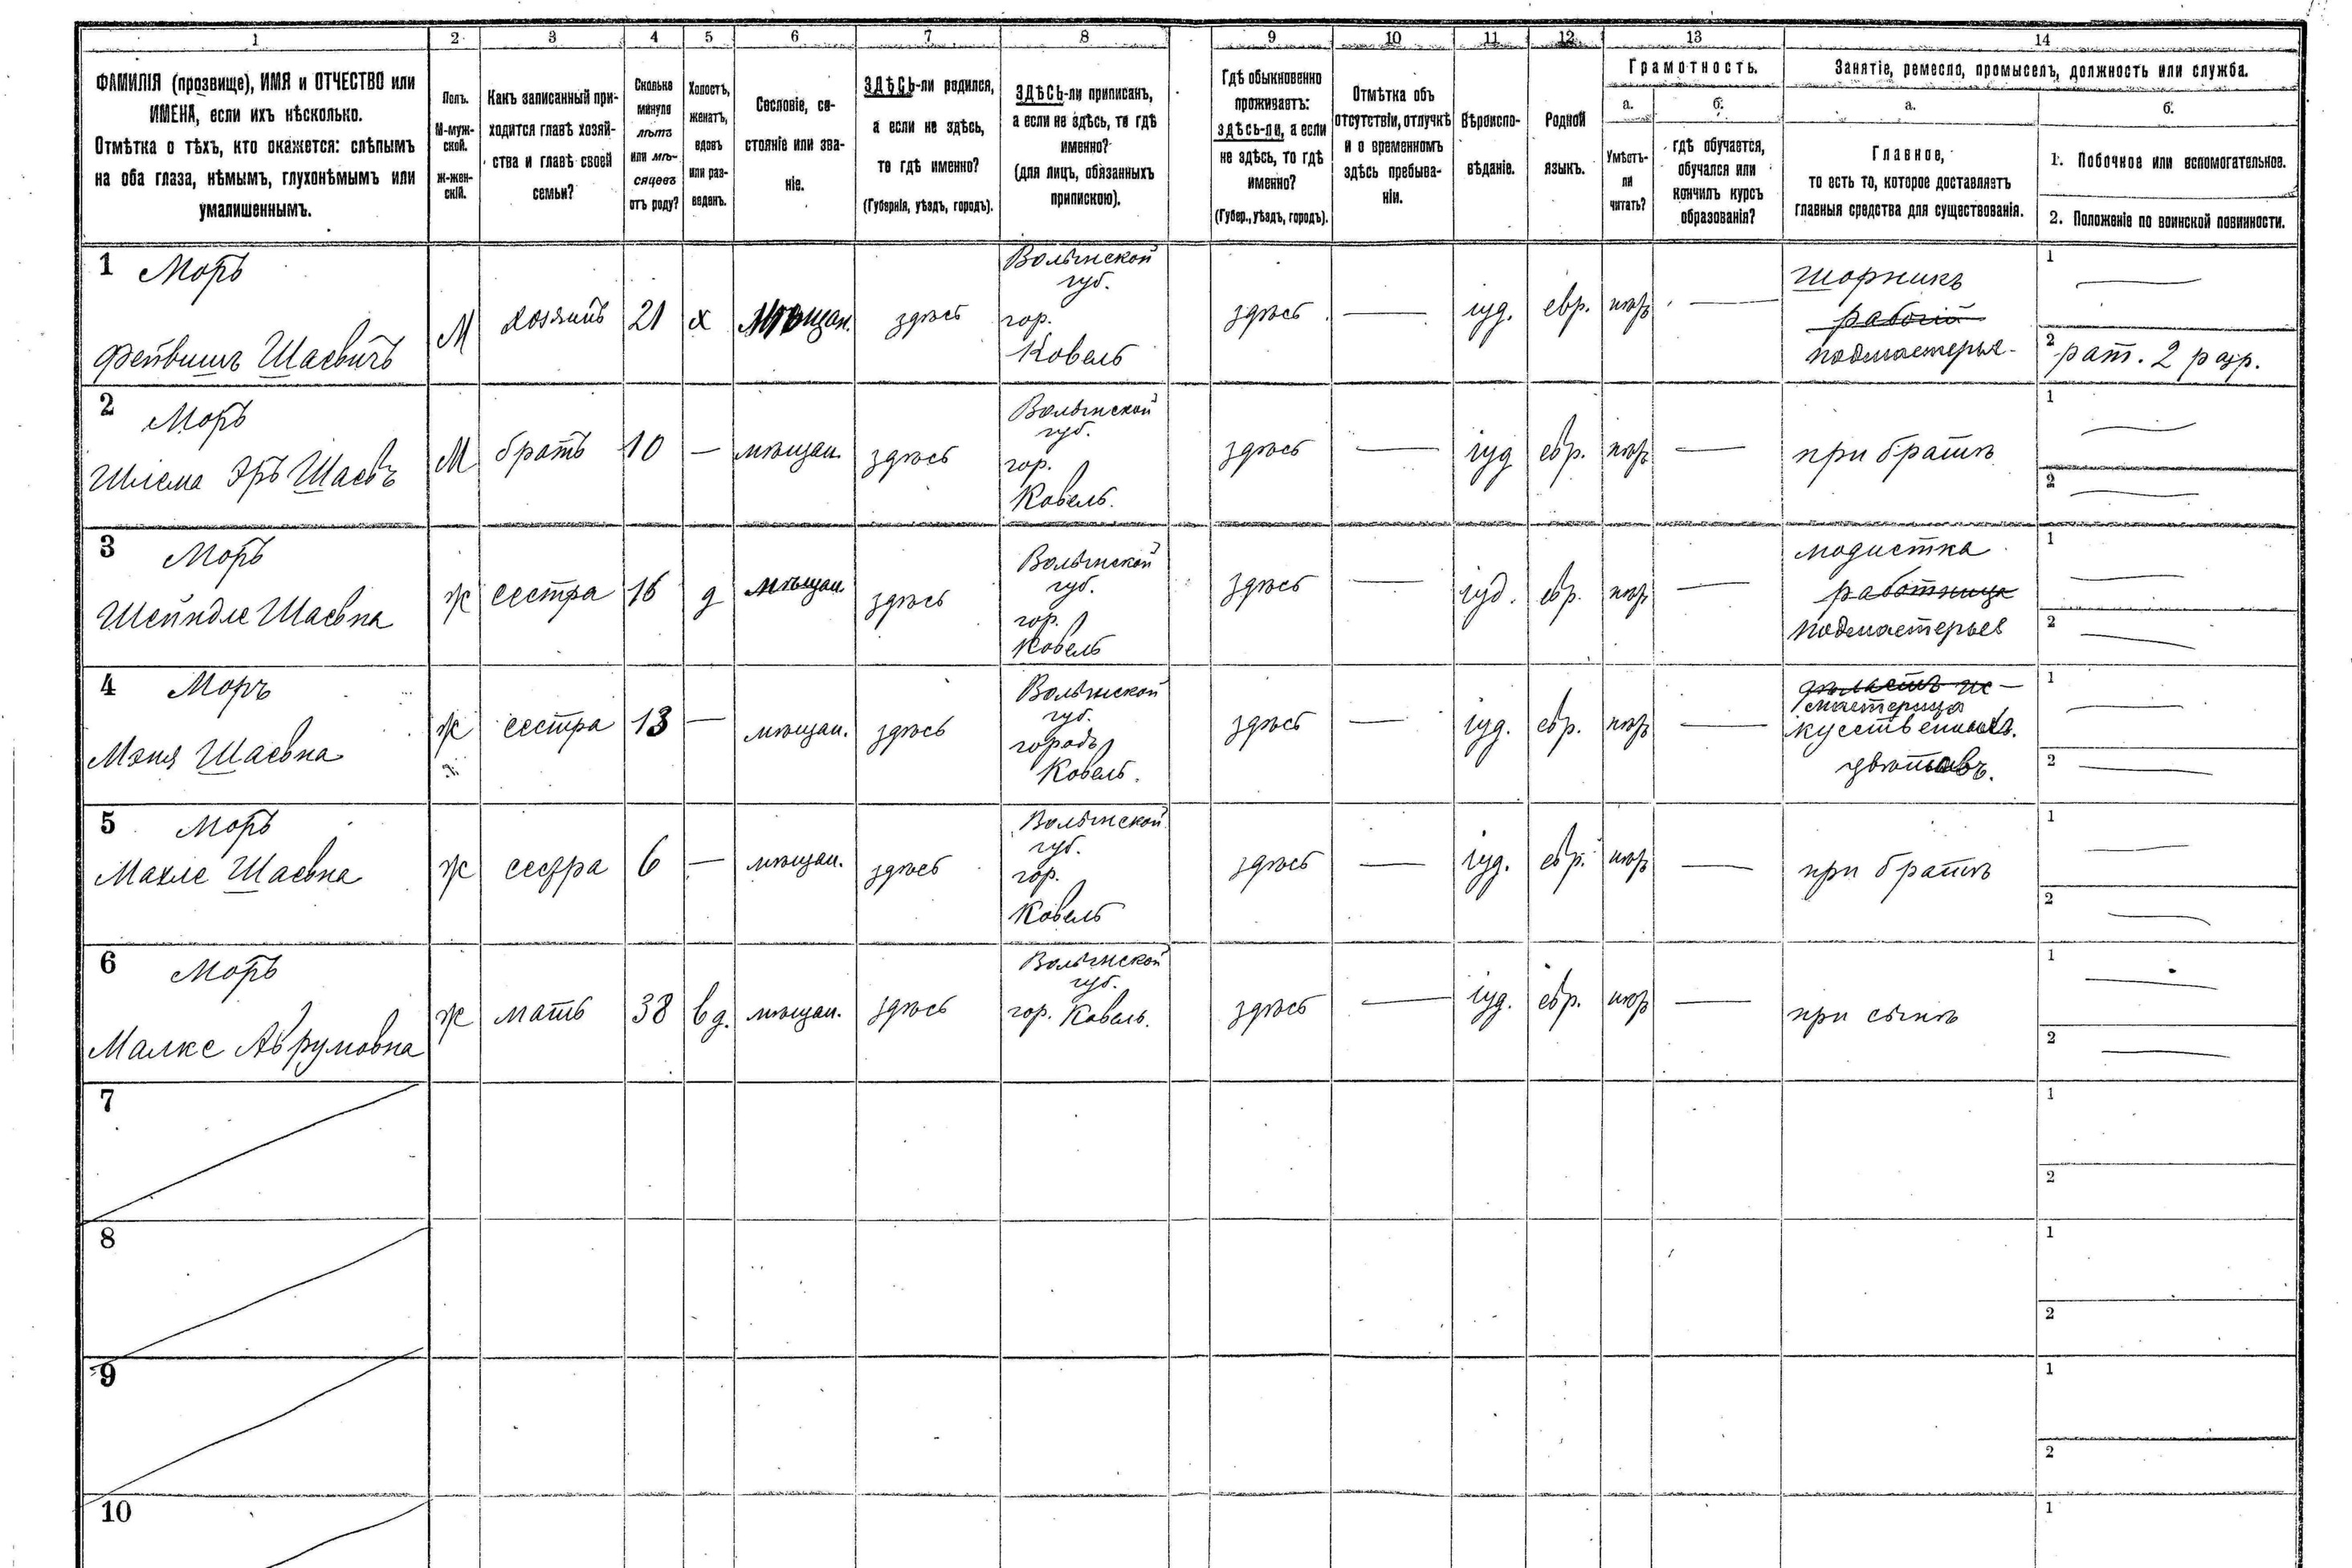 1 2 3 4 5 6 7 8 9 10 11 12 13 14
ФАМИЛІЯ (прозвище), ИМЯ и ОТЧЕСТВО или
ИМЕНА, если ихъ нѣсколько.
Отмѣтка о тѣхъ, кто окажется: слѣпымъ
на оба глаза, нѣмымъ, глухонѣмымъ или
умалишеннымъ.
Полъ.
М-муж-
ской.
Ж-жен-
скій.
Какъ записанный при-
ходится главѣ хозяй-
ства и главѣ своей
семьи?
Сколько
минуло
лѣтъ
или мѣ-
сяцевъ
отъ роду?
Холостъ,
женатъ,
вдовъ
или раз-
веденъ.
Сословіе, со-
стояніе или зва-
ніе.
ЗДѢСЬ-ли родился,
а если не здѣсь,
то гдѣ именно?
(Губернія, уѣздъ, городъ).
ЗДѢСЬ-ли приписанъ,
а если не здѣсь, то гдѣ
именно?
(для лицъ, обязанныхъ
припискою).
Гдѣ обыкновенно
проживаетъ:
здѣсь-ли, а если
не здѣсь, то гдѣ
именно?
(Губер., уѣздъ, городъ).
Отмѣтка объ
отсутствіи, отлучкѣ
и о временномъ
здѣсь пребыва-
ніи.
Вѣроиспо-
вѣданіе.
Родной
языкъ.
Грамотность.
а.
Умѣетъ-
ли
читать?
б.
гдѣ обучается,
обучался или
кончилъ курсъ
образованія?
Занятіе, ремесло, промыселъ, должность или служба.
а.
Главное,
то есть то, которое доставляетъ
главныя средства для существованія.
б.
1. Побочное или вспомогательное.
2. Положеніе по воинской повинности.
1 Моръ
Фейвишъ Шаевичъ
М
хозяинъ
21
х
мѣщан.
здѣсь
Волынской
губ.
гор.
Ковель
здѣсь
—
іуд.
евр.
—
шорникъ
рабочій
подмастерье
1 —
2 рат. 2 разр.
2 Моръ
Шлема Эръ Шаевъ
М
братъ
10
—
мѣщан.
здѣсь
Волынской
губ.
гор.
Ковель.
здѣсь
—
іуд
евр.
—
при братѣ
1 —
2 —
3 Моръ
Шейндле Шаевна
ж
сестра
16
д
мѣщан.
здѣсь
Волынской
губ.
гор.
Ковель
здѣсь
—
іуд.
евр.
—
модистка
работница
подмастерьев
1 —
2 —
4 Моръ
Мэня Шаевна
ж
сестра
13
—
мѣщан.
здѣсь
Волынской
губ.
городъ
Ковель.
здѣсь
—
іуд.
евр.
—
дѣлаетъ ис-
мастерица
кусственныхъ.
цвѣтовъ.
1 —
2 —
5 Моръ
Махле Шаевна
ж
сестра
6
—
мѣщан.
здѣсь
Волынской
губ.
гор.
Ковель
здѣсь
—
іуд.
евр.
—
при братѣ
1 —
2 —
6 Моръ
Малке Аврумовна
ж
мать
38
вд.
мѣщан.
здѣсь
Волынской
губ.
гор. Ковель.
здѣсь
—
іуд.
евр.
—
при сынѣ
1 —
2 —
7
1
2
8
1
2
9
1
2
10
1